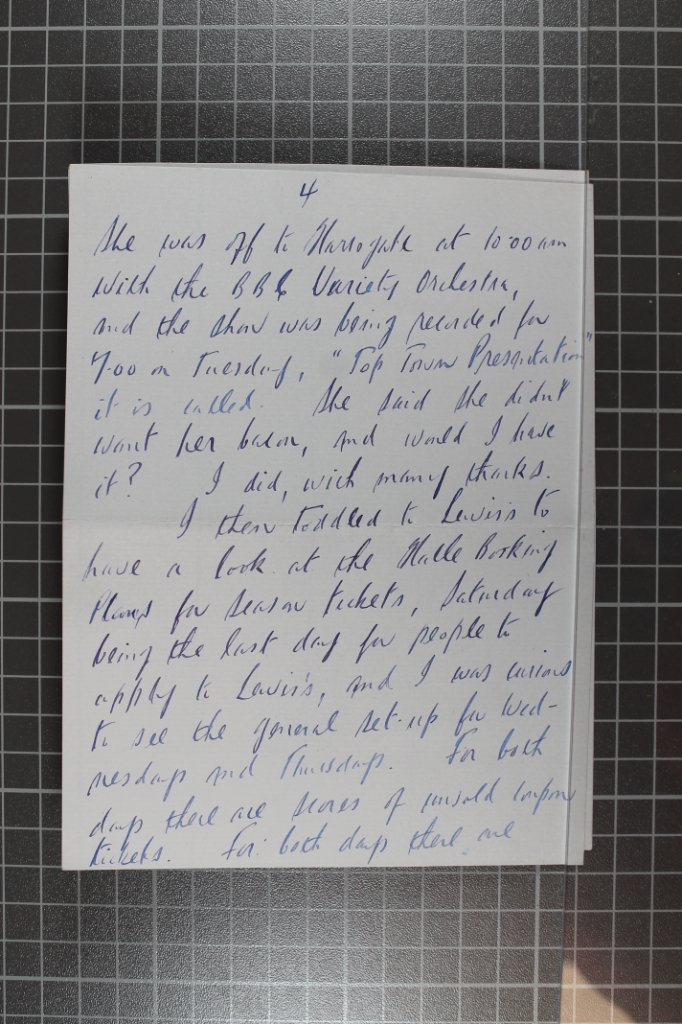 4
She was off to Harrogate at 10.00 am
with the BBC Variety Orchestra,
and the show was being recorded for
7.00 on Tuesday, "Top Town Presentation"
it is called. She said she didn't
want her bacon, and would I have
it? I did, with many thanks.
I then toddled to Lewis's to
have a look at the Halle Booking
Plans for season tickets, Saturday
being the last day for people to
apply to Lewis's, and I was curious
to see the general set-up for Wed-
nesdays and Thursdays. For both
days there are scores of unsold coupon
tickets. For both days there are